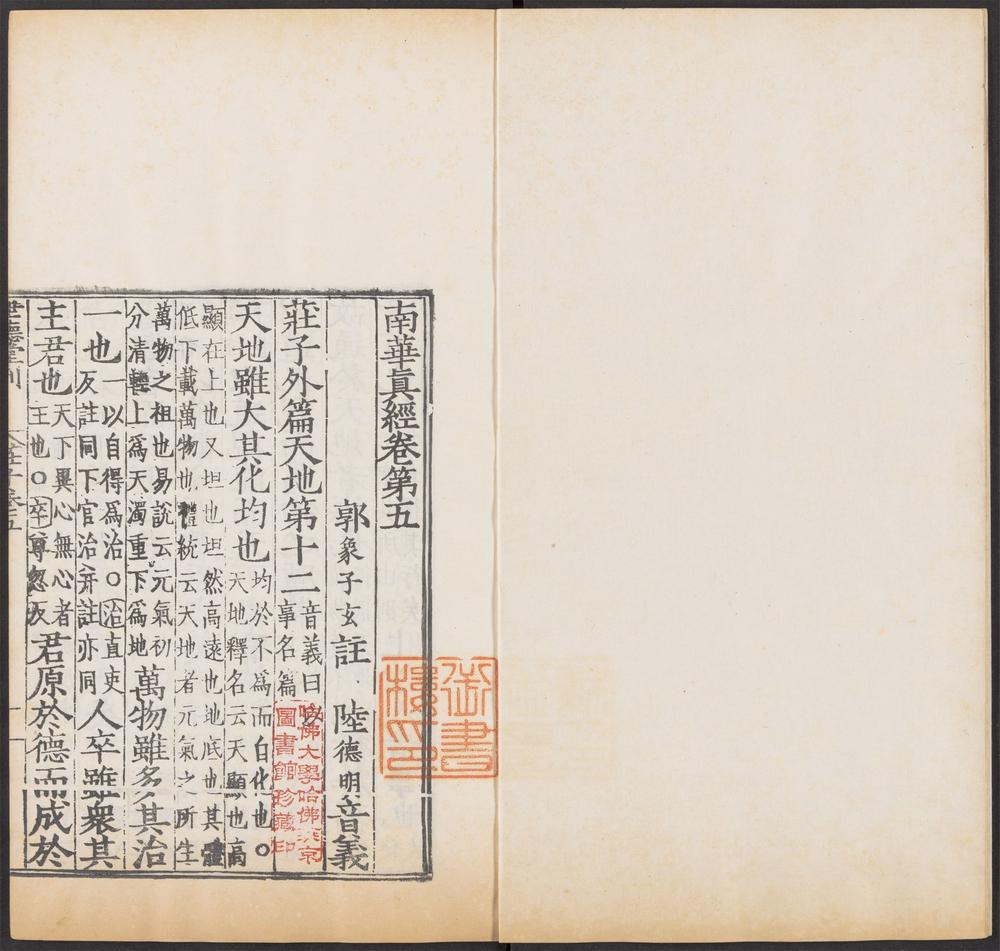 南華眞經卷第五
郭象子玄註　陸德明音義
莊子外篇天地第十二
音義曰以
事名篇
天地雖大其化均也
均於不爲而自化也○
天地釋名云天顯也高
顯在上也又坦也坦然高遠也地底也其體
低下載萬物也禮統云天地者元氣之所生
萬物之祖也易說云元氣初
分清輕上爲天濁重下爲地
萬物雖多其治
一也
一以自得爲治○治直吏
反註同下官治并註亦同
人卒雖衆其
主君也
天下異心無心者
主也○卒尊忽反
君原於德而成於
世德堂刊
莊子卷五
一
哈佛大學哈佛燕京
圖書館珍藏印
御書
樓印